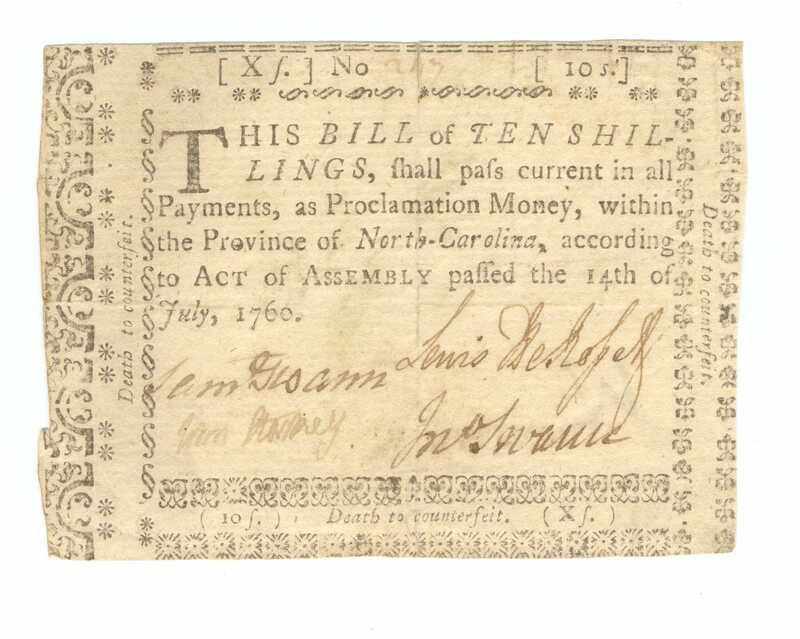 [ X ſ. ] No 247 [ 10 s.]
THIS BILL of TEN SHIL-
LINGS, ſhall paſs current in all
Payments, as Proclamation Money, within
the Province of North-Carolina, according
to ACT of ASSEMBLY paſſed the 14th of
July, 1760.
Lewis DeRoſſett
Sam Swann
Jno Swann
( 10 ſ. ) Death to counterfeit. ( X ſ. )
Death to counterfeit.
Death to counterfeit.